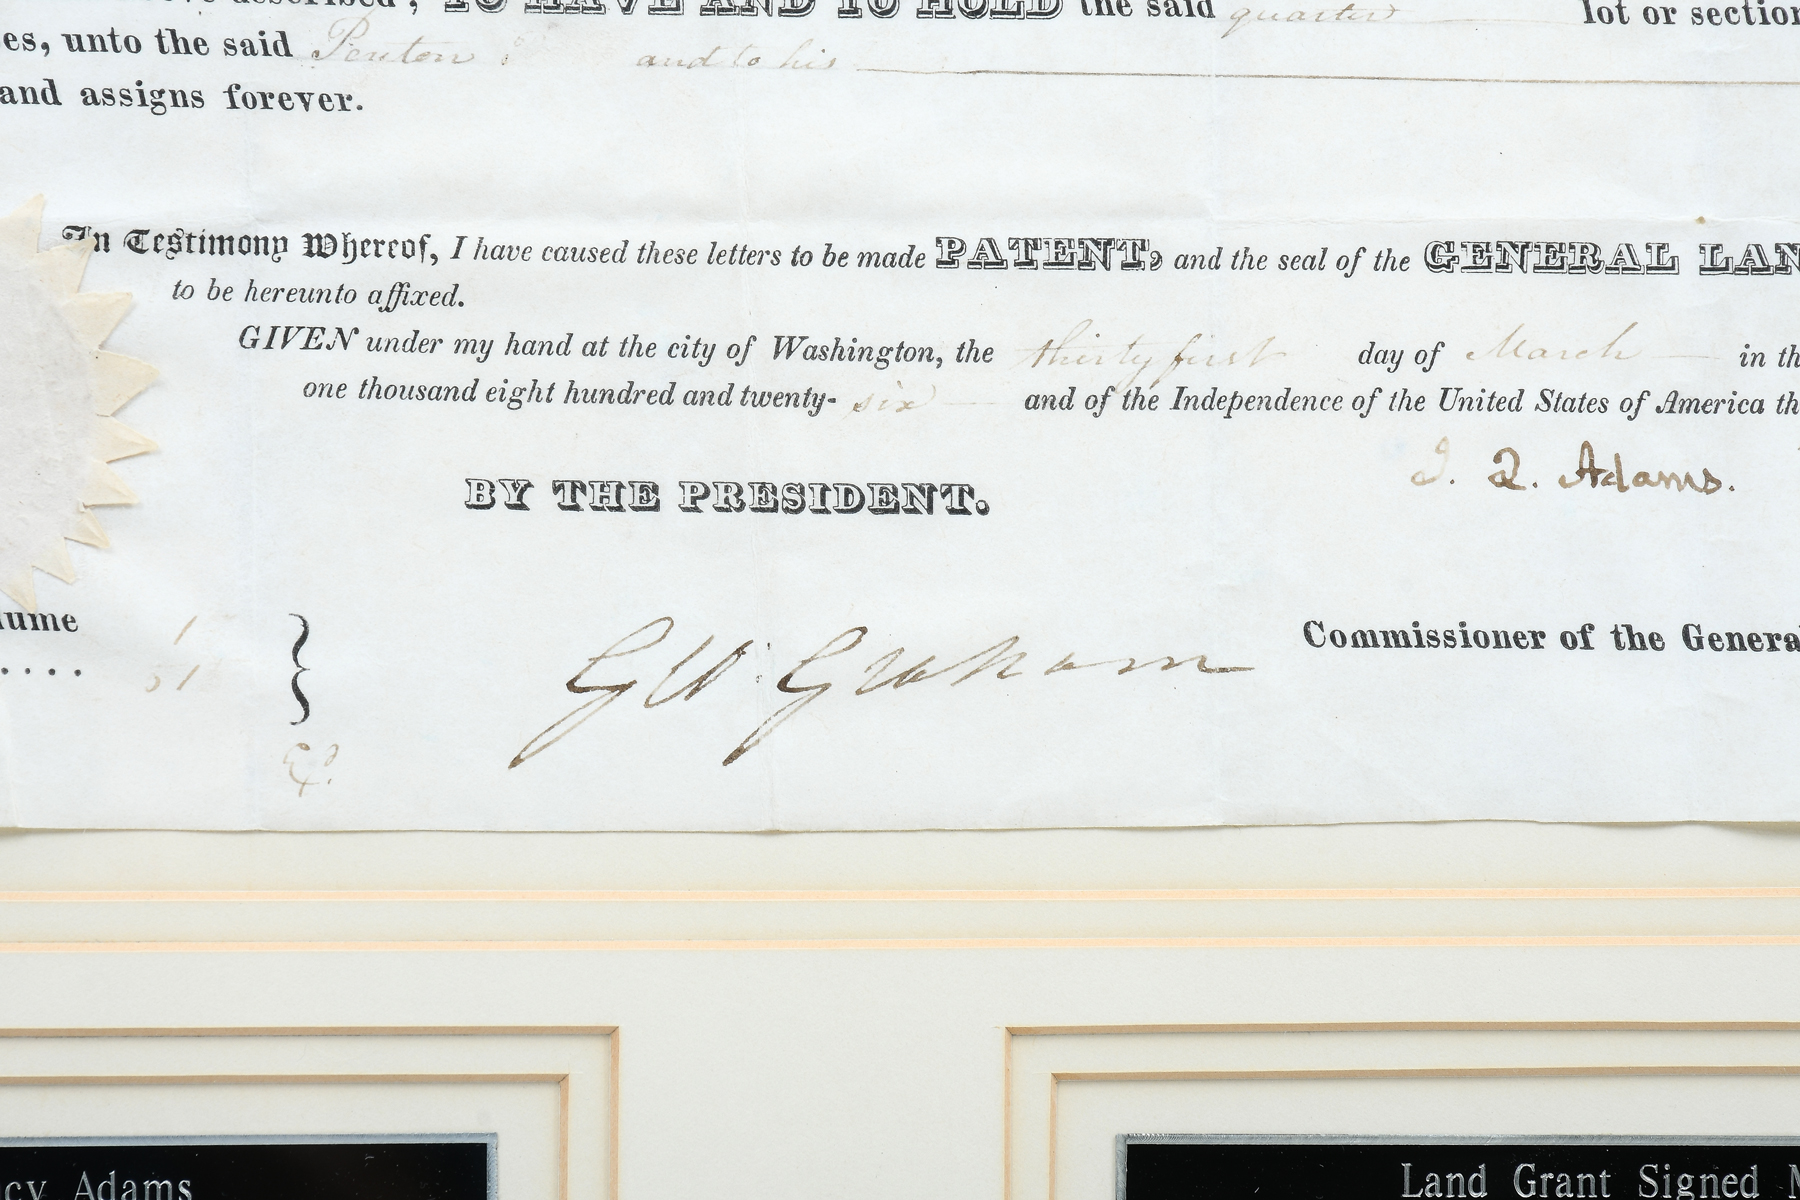 described; TO HAVE AND TO HOLD the said quarter lot or section
es, unto the said Penton and to his
and assigns forever.
In Testimony Whereof, I have caused these letters to be made PATENT, and the seal of the GENERAL LAN
to be hereunto affixed.
GIVEN under my hand at the city of Washington, the thirty first day of March in th
one thousand eight hundred and twenty- six and of the Independence of the United States of America th
J. Q. Adams.
BY THE PRESIDENT.
lume 1
.... 51 }
G W. Graham Commissioner of the Genera
cy Adams
Land Grant Signed M